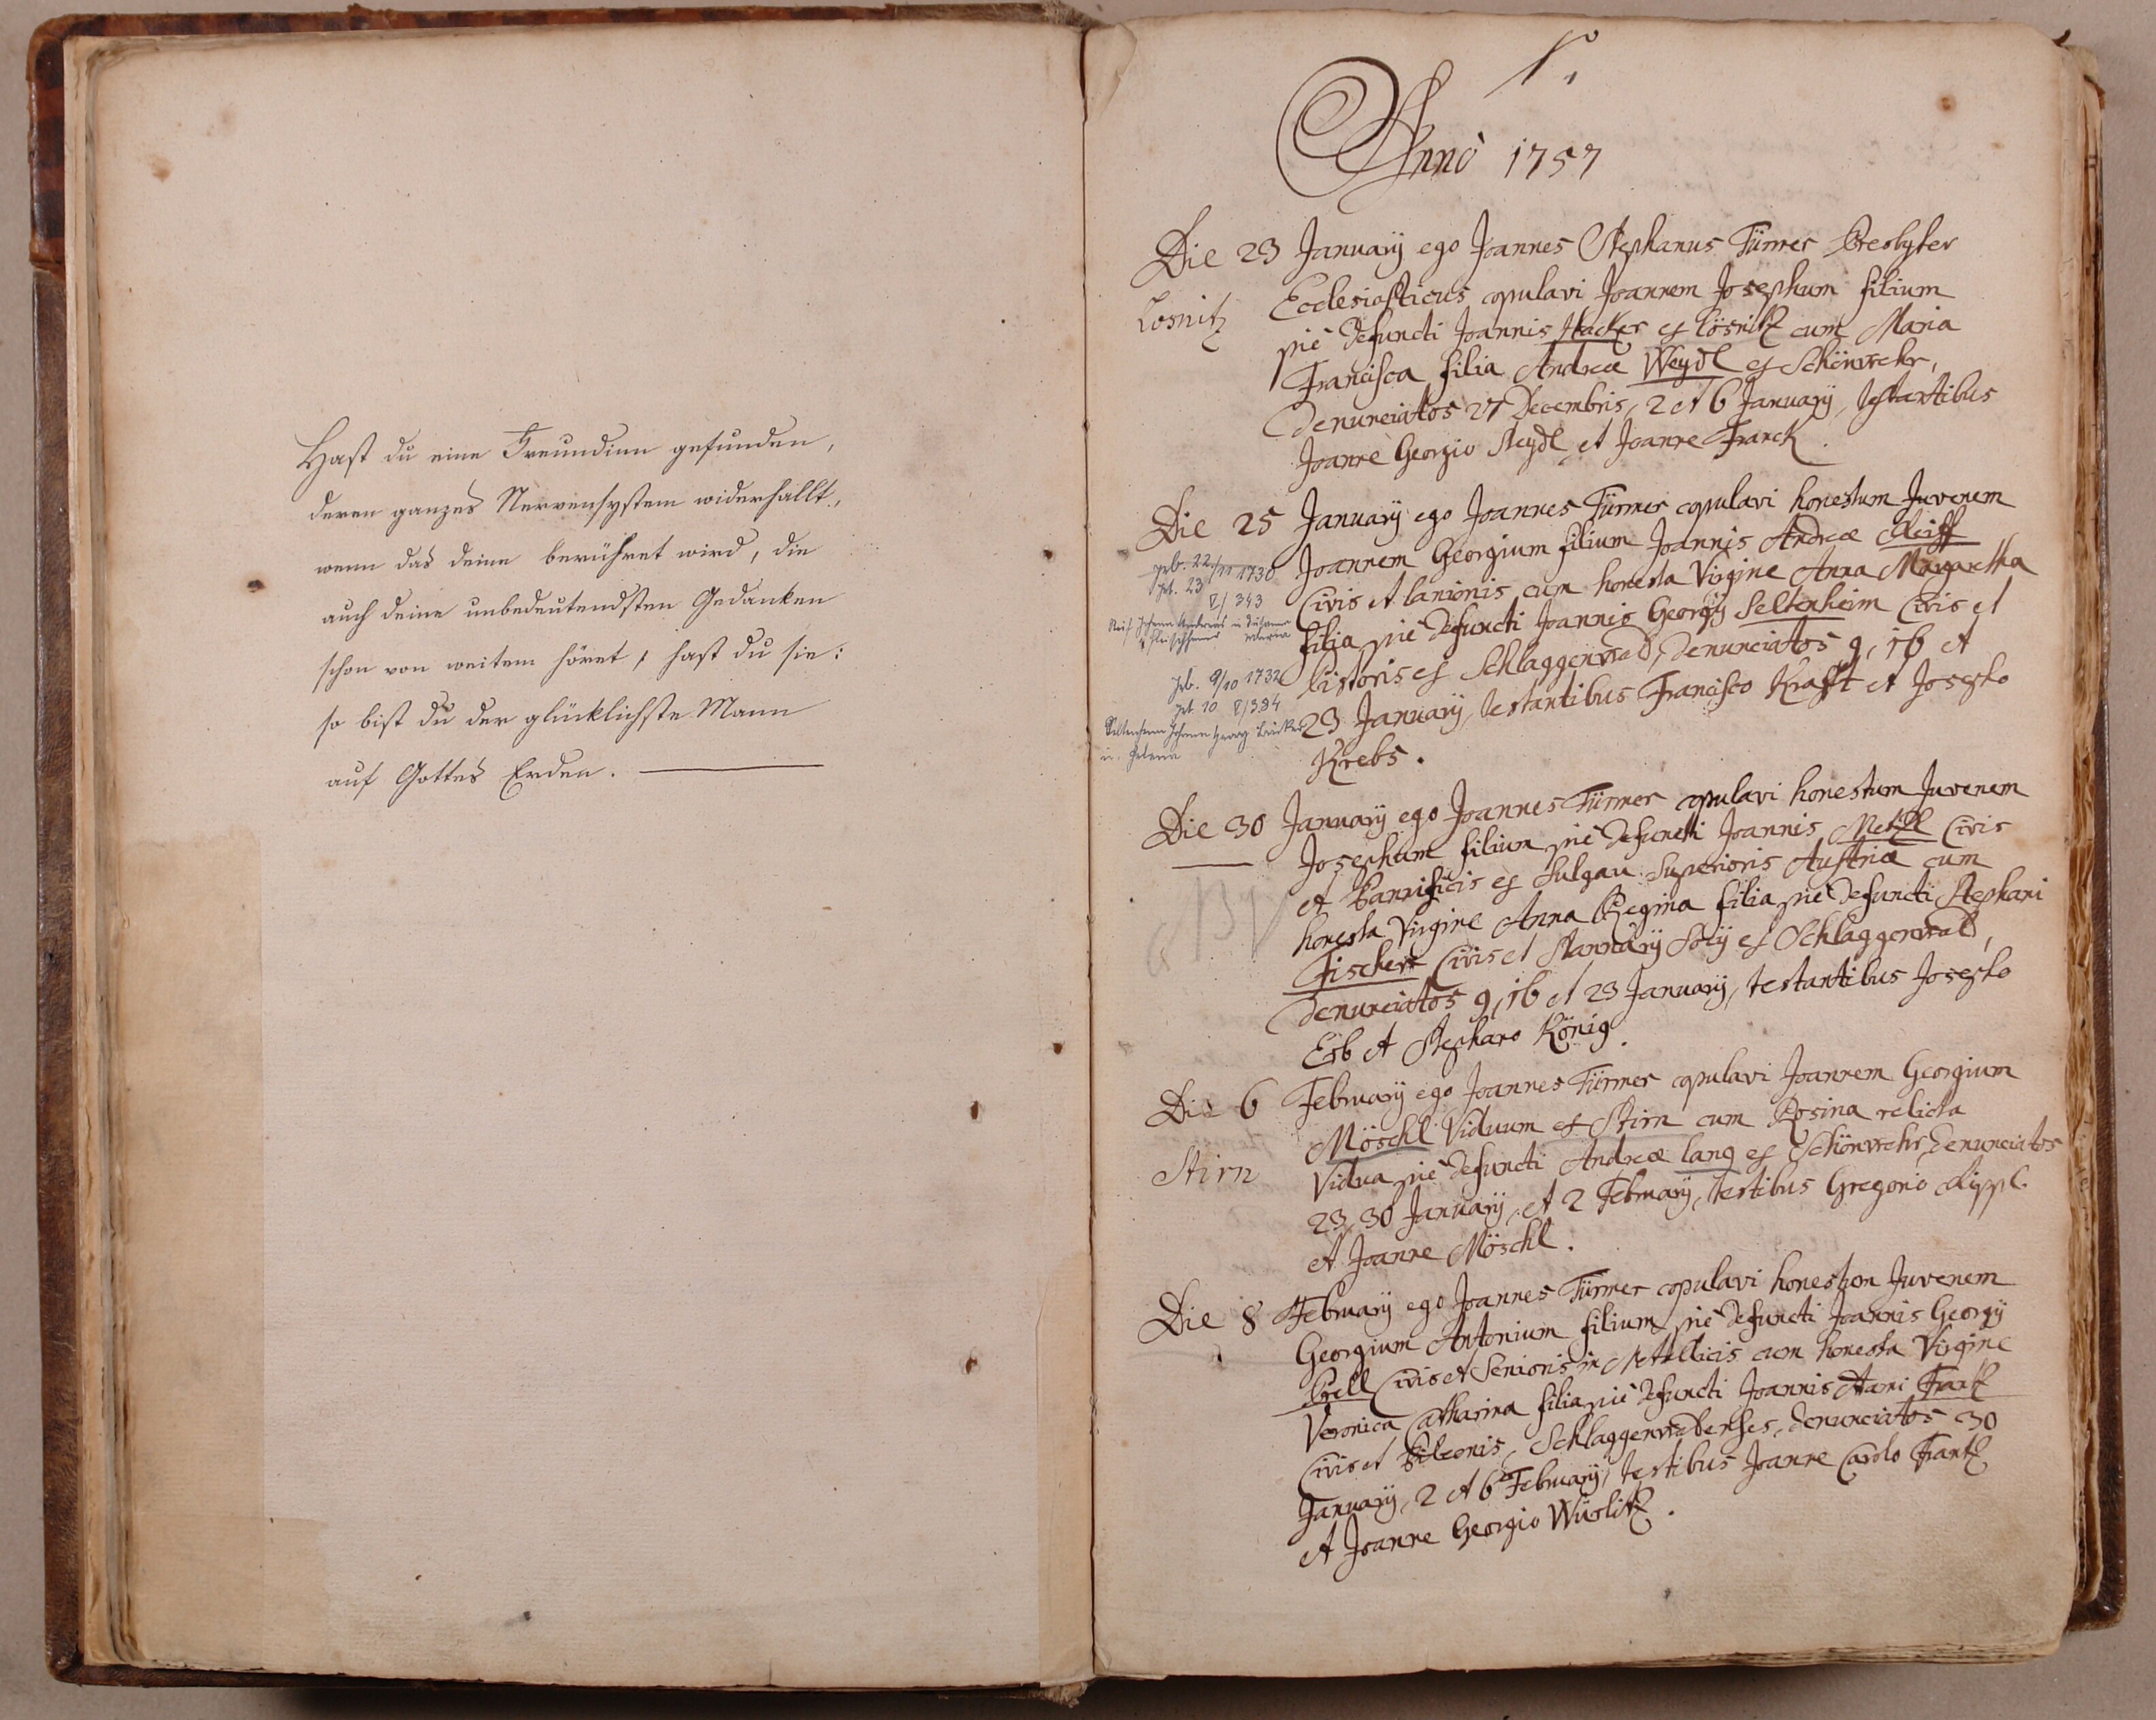 Hast du eine Freundinn gefunden,
deren ganzes Nervensystem widerhallt,
wenn das deine berühret wird, die
auch deine unbedeutendsten Gedanken
schon von weitem höret, hast du sie:
so bist du der glücklichste Mann
auf Gottes Erden. —
1.
Anno 1757
Die 23 January ego Joannes Stephanus Türmer Presbyter
Losnitz
Ecclesiasticus copulavi Joannem Josephum filium
pie defuncti Joannis Hacker ex Lösnitz cum Maria
Francisca filia Andreæ Weydl ex Schönwehr,
denunciatos 27 Decembris, 2 et 6 January, testantibus
Joanne Georgio Seydl et Joanne Franck.
Die 25 January ego Joannes Türmer copulavi honestum Juvenem
Joannem Georgium filium Joannis Andreæ Reiff
Civis et lanionis cum honesta Virgine Anna Margaretha
filia pie defuncti Joannis Georgy Seltenheim Civis et
Pistoris ex Schlaggenwad, denunciatos 9, 16 et
23 January, testantibus Francisco Krafft et Josepho
Krebs.
geb. 22/11 1730
get. 23
V/343
Reif Johann Andreas u Susanna
Fleischhauer Maria
geb. 9/10 1732
get 10 V/384
Seltenheim Johann Georg Bäcker
u. Helena
Die 30 January ego Joannes Türmer copulavi honestum Juvenem
Josephum filium pie defuncti Joannis Metzl Civis
et Pannificis ex Sulgau Superioris Austriæ cum
honesta Virgine Anna Regina filia pie defuncti Stephani
Fischer Civis et Stannary Socy ex Schlaggenwad,
denunciatos 9, 16 et 23 January, testantibus Josepho
Erb et Stephano König.
Die 6 February ego Joannes Türmer copulavi Joannem Georgium
Stirn
Möschl Viduum ex Stirn cum Rosina relicta
Vidua pie defuncti Andreæ Lang ex Schönwehr, denunciatos
23, 30 January, et 2 February, testibus Gregorio Rippl
et Joanne Möschl.
Die 8 February ego Joannes Türmer copulavi honestum Juvenem
Georgium Antonium filium pie defuncti Joannis Georgy
Prell Civis et Senioris in Metallicis cum honesta Virgine
Veronica Catharina filia pie defuncti Joannis Adami Frantz
Civis et Pileonis, Schlaggenwadenses, denunciatos 30
January, 2 et 6 February, testibus Joanne Carolo Frantz
et Joanne Georgio Würlitz.